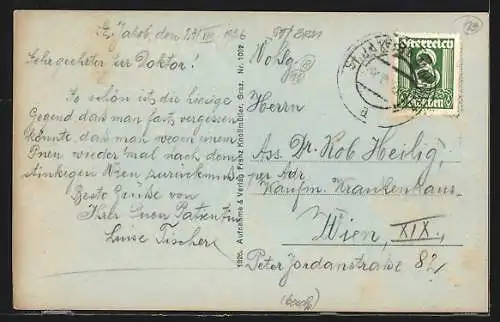 St. Jakob, den 29/VII 1926
Sehr geehrter Herr Doktor!
So schön ist die hiesige
Gegend das man fast vergessen
könnte das man wegen einem
Pneu wieder mal nach dem
stinkigen Wien zurück muss
Beste Grüsse von
Ihrer Pneu Patientin
Luise Tischer
1926. Aufnahme & Verlag Franz Knollmüller, Graz. Nr. 1002
Wohlg.
Herrn
Ass. Dr. Rob Heilig,
per Adr
Kaufm. Krankenhaus
Wien, XIX.,
Peter Jordanstraße 82
ST. JAKOB
Österreich
8
Groschen